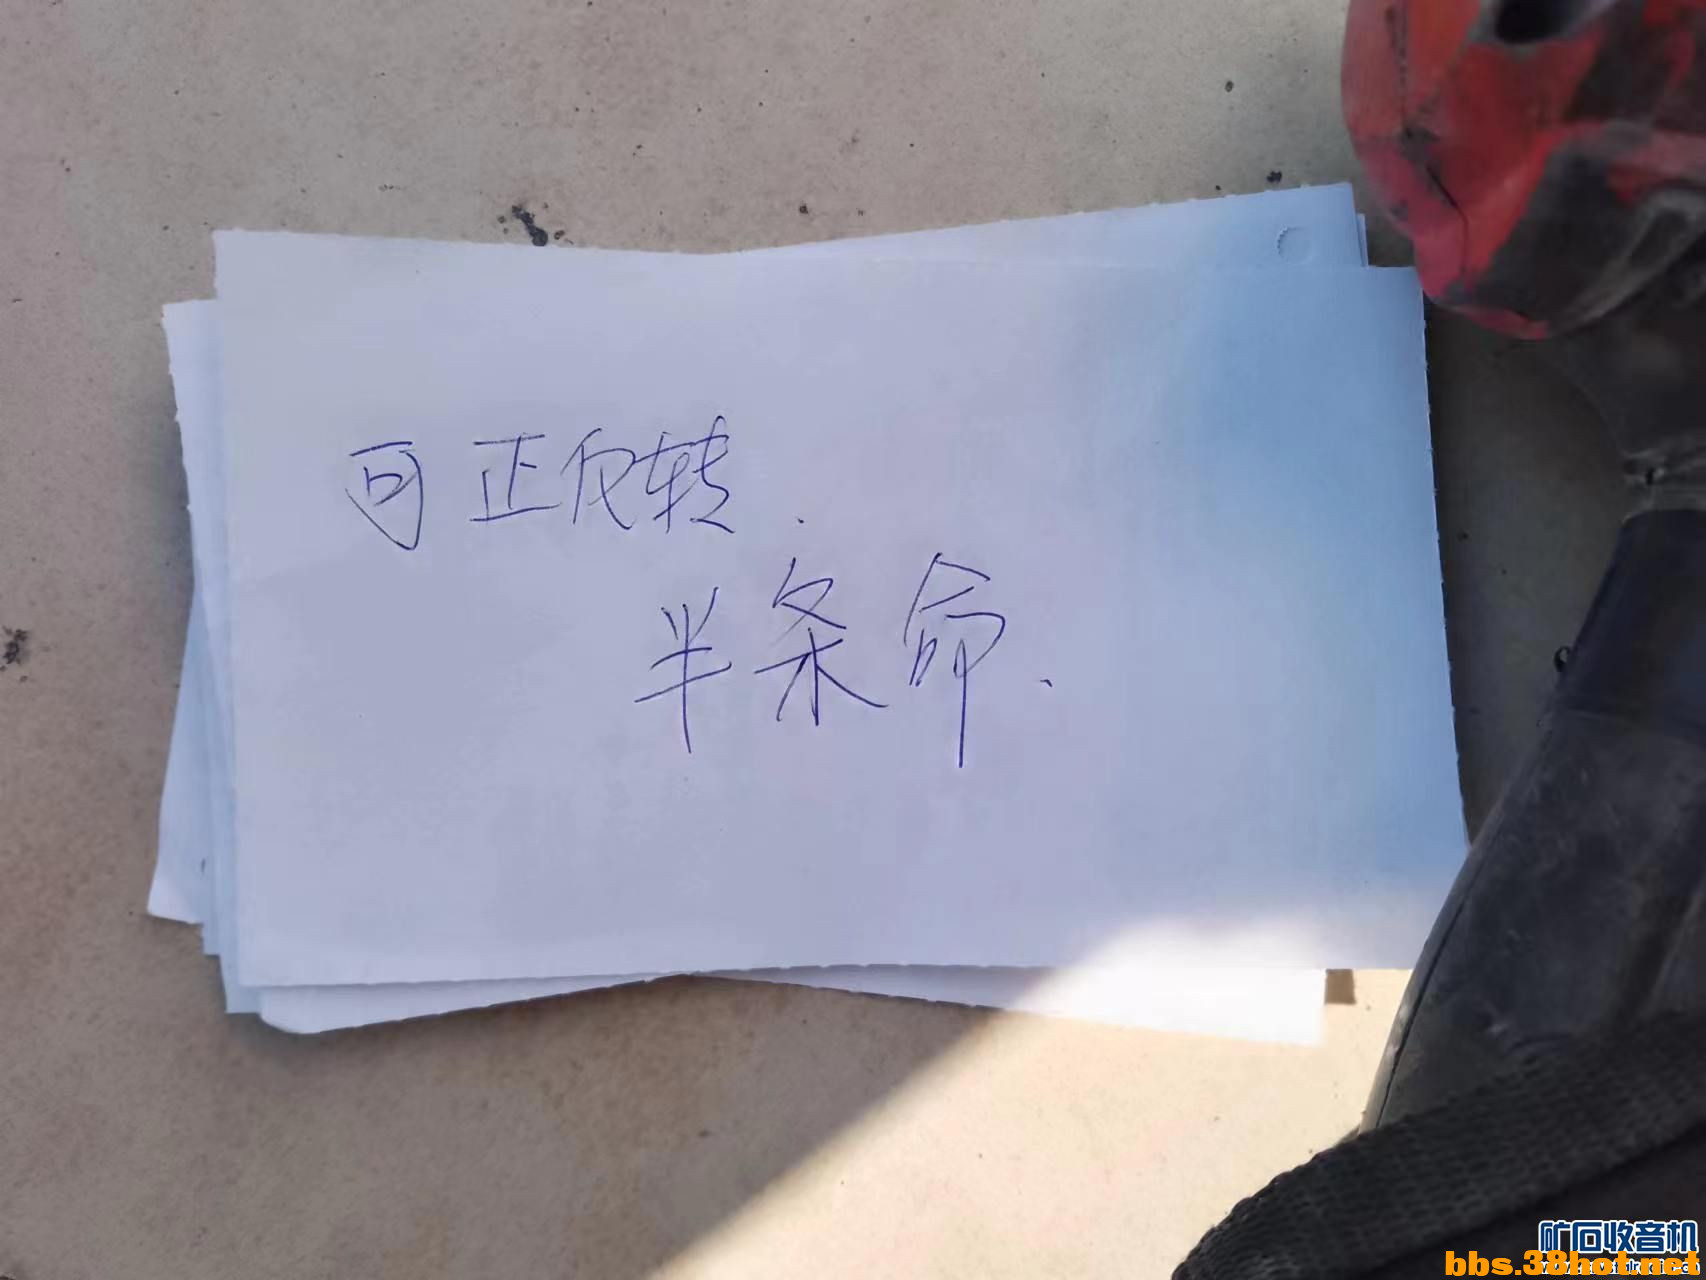 可正反转.
半条命.
矿石收音机
bbs.38hot.net